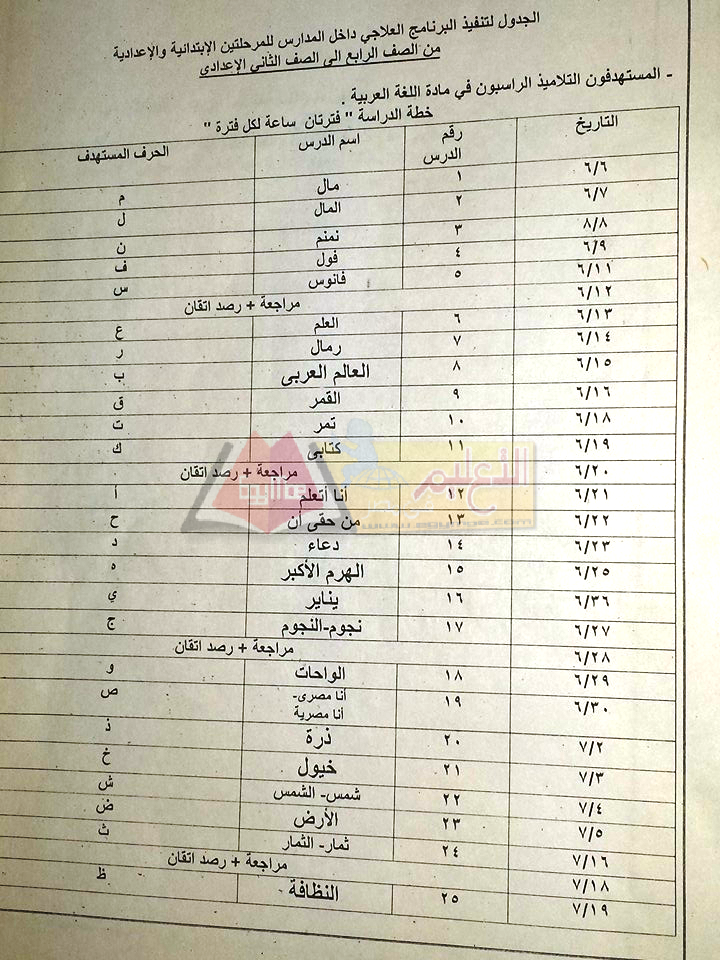 الجدول لتنفيذ البرنامج العلاجي داخل المدارس للمرحلتين الإبتدائية والإعدادية
من الصف الرابع الى الصف الثاني الإعدادى
- المستهدفون التلاميذ الراسبون في مادة اللغة العربية .
خطة الدراسة " فترتان ساعة لكل فترة "
التاريخ رقم الدرس اسم الدرس الحرف المستهدف
٦/٦ ١ مال م
٦/٧ ٢ المال ل
٨/٨ ٣ نمنم ن
٦/٩ ٤ فول ف
٦/١١ ٥ فانوس س
٦/١٢ مراجعة + رصد اتقان
٦/١٣ ٦ العلم ع
٦/١٤ ٧ رمال ر
٦/١٥ ٨ العالم العربى ب
٦/١٦ ٩ القمر ق
٦/١٨ ١٠ تمر ت
٦/١٩ ١١ كتابى ك
٦/٢٠ مراجعة + رصد اتقان
٦/٢١ ١٢ أنا أتعلم أ
٦/٢٢ ١٣ من حقى أن ح
٦/٢٣ ١٤ دعاء د
٦/٢٥ ١٥ الهرم الأكبر ه
٦/٣٦ ١٦ يناير ي
٦/٢٧ ١٧ نجوم-النجوم ج
٦/٢٨ مراجعة + رصد اتقان
٦/٢٩ ١٨ الواحات و
٦/٣٠ ١٩ أنا مصرى- أنا مصرية ص
٧/٢ ٢٠ ذرة ذ
٧/٣ ٢١ خيول خ
٧/٤ ٢٢ شمس- الشمس ش
٧/٥ ٢٣ الأرض ض
٧/١٦ ٢٤ ثمار- الثمار ث
٧/١٨ مراجعة + رصد اتقان
٧/١٩ ٢٥ النظافة ظ
التعليم